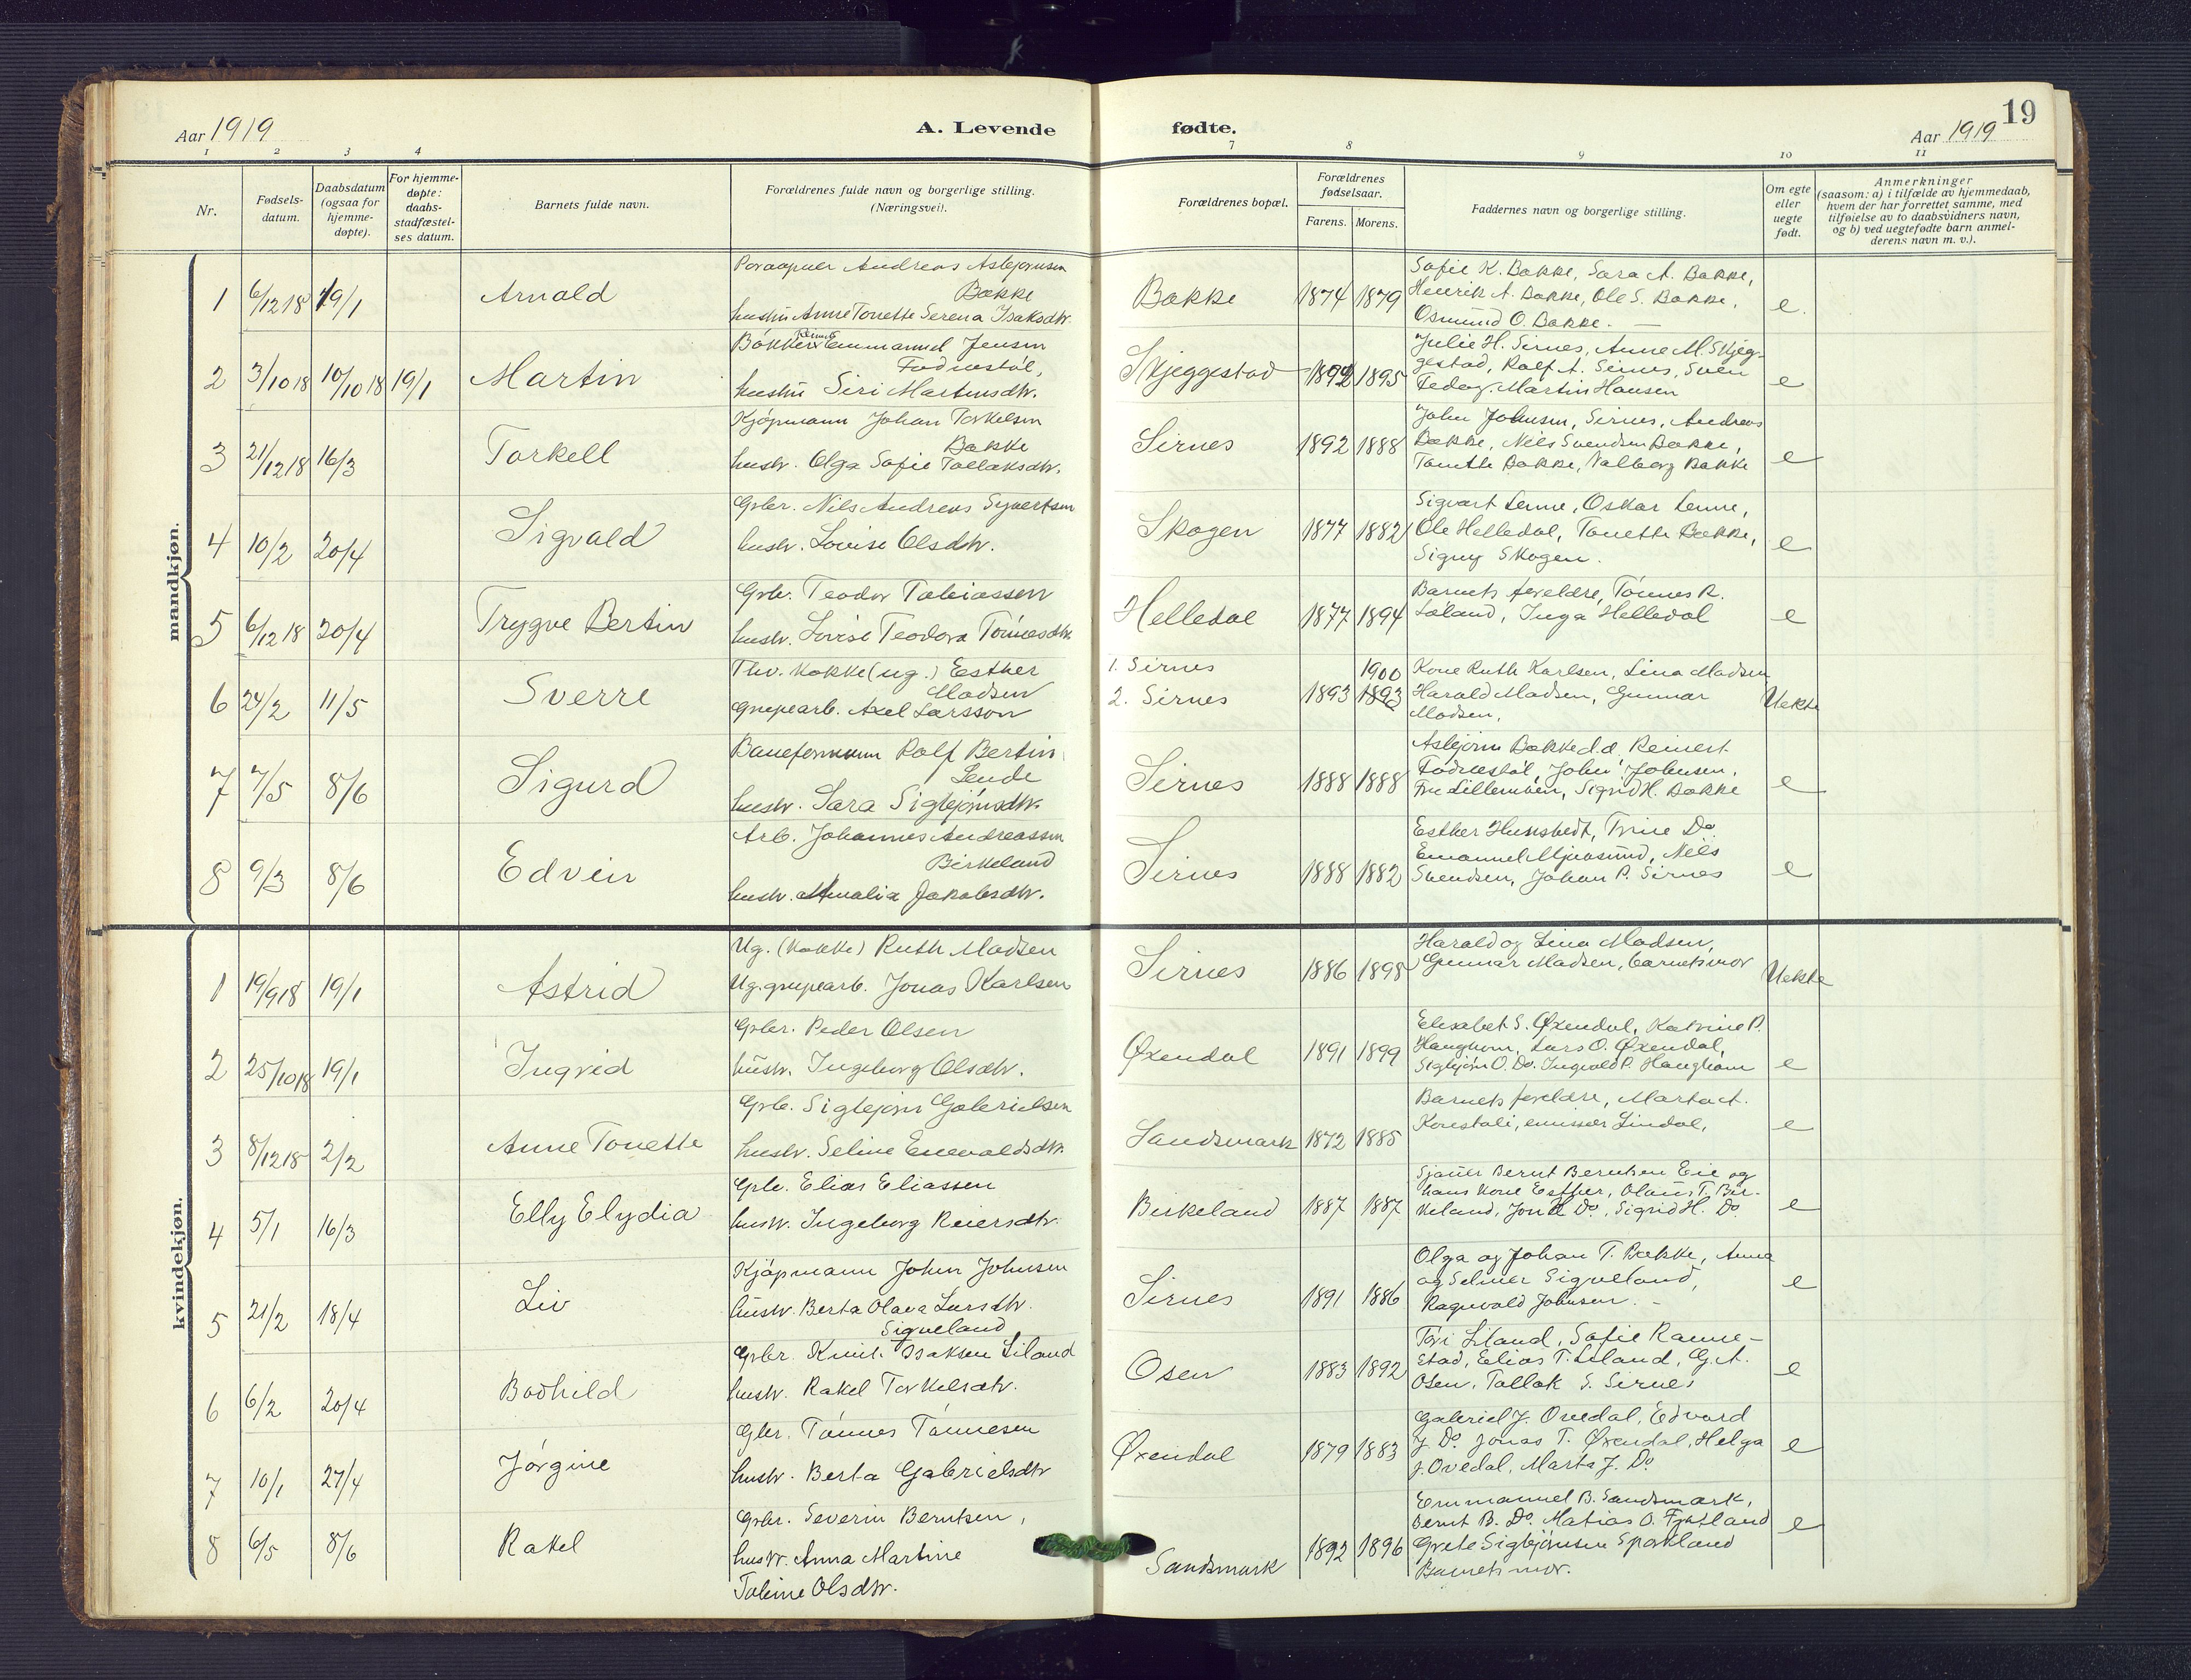 Aar 1919
A. Levende
fødte.
19
Aar 1919
1 2 3 4
7 8 9 10 11
Nr.
Fødselsdatum.
Daabsdatum (ogsaa for hjemmedøpte).
For hjemmedøpte: daabsstadfæstelses datum.
Barnets fulde navn.
Forældrenes fulde navn og borgerlige stilling. (Næringsvei).
Forældrenes bopæl.
Forældrenes fødselsaar.
Farens. Morens.
Faddernes navn og borgerlige stilling.
Om egte eller uegte født.
Anmerkninger
(saasom: a) i tilfælde av hjemmedaab,
hvem der har forrettet samme, med
tilføielse av to daabsvidners navn,
og b) ved uegtefødte barn anmelderens navn m. v.).
mandkjøn.
1 6/12 18 19/1 Arnald
Andreas Asbjørnsen
Bakke
hustru Anne Tonette Serena Isaksdtr.
Bakke 1874 1879
Sofie K. Bakke, Sara A. Bakke,
Henrik A. Bakke, Ole S. Bakke,
Osmund O. Bakke. —
e.
2 3/10 18 10/10 18 19/1 Martin
Emmanuel Jensen
Fodnestøl,
hustru Siri Martinsdtr.
Skjeggestad 1892 1895
Julie H. Sirnes, Anne M. Skjeggestad, Rolf A. Sirnes, Sven
Fedog. Martin Hansen
e
3 21/12 18 16/3 Torkell
Kjøpmann Johan Torkelsen
Bakke
hustr. Olga Sofie Tollaksdtr.
Sirnes 1892 1888
John Johnsen, Sirnes, Andreas
Bakke, Nils Svendsen Bakke,
Tonette Bakke, Valborg Bakke
e
4 10/2 20/4 Sigvald
Gbr. Nils Andreas Syvertsen
hustr. Lovise Olsdtr.
Skogen 1877 1882
Sigvart Lenne, Oskar Lenne,
Ole Helledal, Tonette Bakke,
Signy Skogen.
e
5 6/12 18 20/4 Trygve Bertin
Gbr. Teodor Tobiassen
hustr. Lovise Teodora Tønnesdtr.
Helledal 1877 1894
Barnets foreldre, Tønnes R.
Løland, Inga Helledal
e
6 24/2 11/5 Sverre
Thv. Kokke (ug.) Esther
Madsen
Grupearb. Axel Larsson
1. Sirnes 1900
2. Sirnes 1893 1893
Kone Ruth Karlsen, Lina Madsen
Harald Madsen, Gunnar
Madsen.
Uekte
7 7/5 8/6 Sigurd
Baneformann Rolf Bertin
Lende
hustr. Sara Sigbjørnsdtr.
Sirnes 1888 1888
Asbjørn Bakke d.d. Reinert
Fodnestøl, John Johnsen,
Fru Lillemoen, Sigrid H. Bakke
e
8 9/3 8/6 Edvin
Arb. Johannes Andreassen
Birkeland
hustr. Amalia Jakobsdtr.
Sirnes 1888 1882
Esther Hunsbedt, Trine Do.
Emanuel Mjaasund, Nils
Svendsen, Johan P. Sirnes
e
kvindekjøn.
1 19/9 18 19/1 Astrid
Ug. (Kokke) Ruth Madsen
Ug. grupearb. Jonas Karlsen
Sirnes 1886 1898
Harald og Lina Madsen,
Gunnar Madsen, barnets mor
Uekte
2 25/10 18 19/1 Ingrid
Gbr. Peder Olsen
hustr. Ingeborg Olsdtr.
Øxendal 1891 1899
Elisabet S. Øxendal, Katrine P.
Haughom, Lars O. Øxendal,
Sigbjørn O. Do. Ingvald P. Haughom
e
3 8/12 18 2/2 Anne Tonette
Gbr. Sigbjørn Gabrielsen
hustr. Seline Enevaldsdtr.
Sandsmark 1872 1885
Barnets foreldre, Marta A.
Konstali, emissær Lindal,
e
4 5/1 16/3 Elly Elydia
Gbr. Elias Eliassen
hustr. Ingeborg Reiersdtr.
Birkeland 1887 1887
Sjauer Bernt Berntsen Eie og
hans kone Esther, Olaus T. Birkeland, Jonil Do., Sigrid H. Do
e
5 21/2 18/4 Liv
Kjøpmann John Johnsen
hustr. Berta Olava Larsdtr.
Sigveland
Sirnes 1891 1886
Olga og Johan T. Bakke, Anna
og Selmer Sigveland,
Ragnvald Johnsen. —
e
6 6/2 20/4 Bodhild
Gbr. Knut Isaksen Liland
hustr. Rakel Torkelsdtr.
Osen 1883 1892
Tori Liland, Sofie Rannestad, Elias T. Liland, G. A.
Osen, Tollak S. Sirnes
e
7 10/1 27/4 Jørgine
Gbr. Tønnes Tønnesen
hustr. Berta Gabrielsdtr
Øxendal 1879 1883
Gabriel J. Ovedal, Edvard
J. Do. Jonas T. Øxendal, Helga
J. Ovedal, Marta J. Do
e
8 6/5 8/6 Rakel
Gbr. Severin Berntsen,
hustr. Anna Martine
Tobine Olsdtr.
Sandsmark 1892 1896
Emmanuel B. Sandsmark,
Bernt B. Do. Matias O. Fjotland
Grete Sigbjørnsen Sporkland
Barnets mor.
e